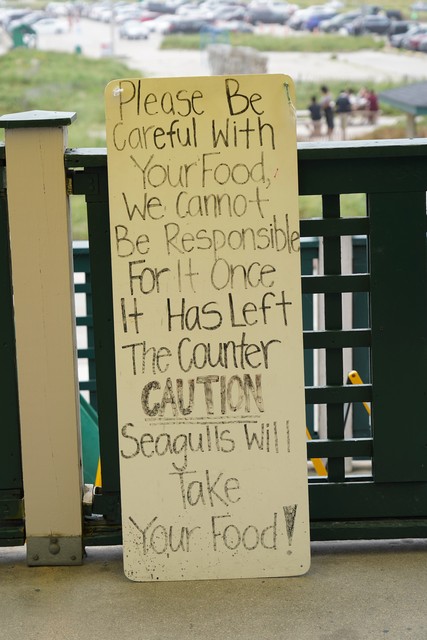 Please Be
Careful With
Your Food,
We Cannot
Be Responsible
For It Once
It Has Left
The Counter
CAUTION
Seagulls Will
Take
Your Food!